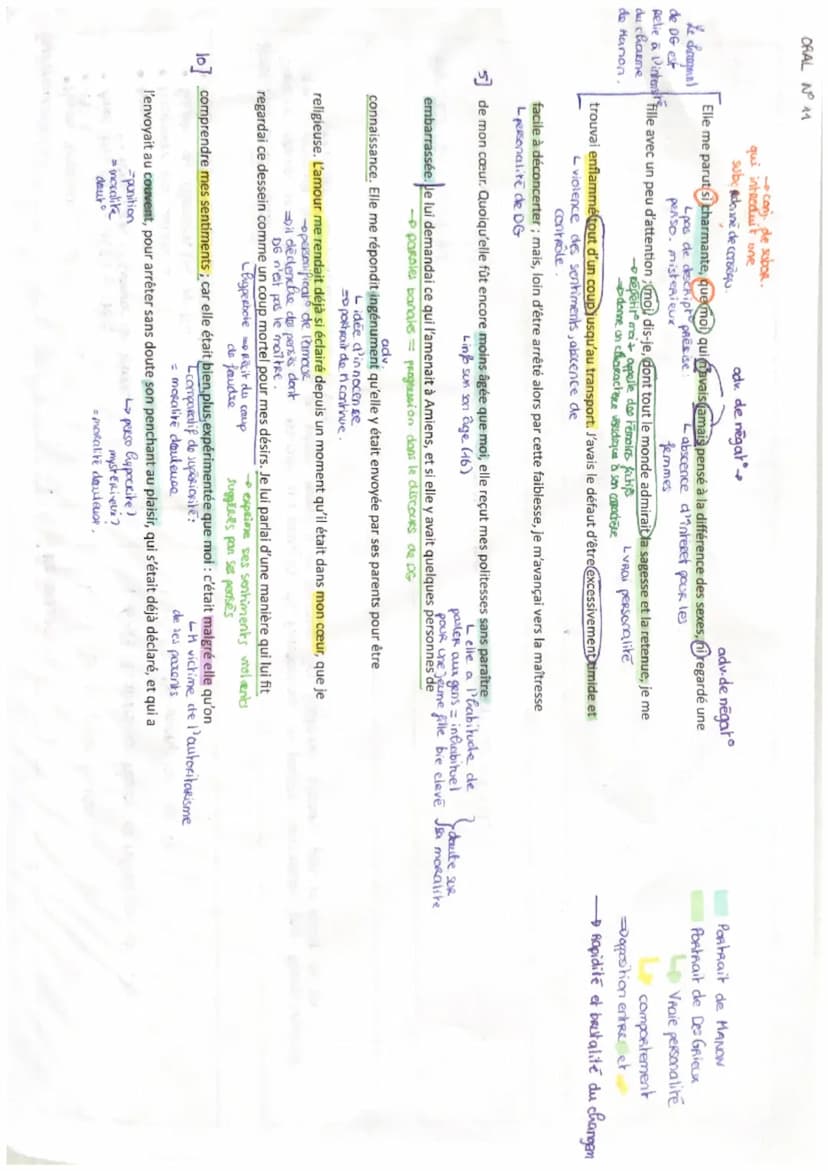 ORAL N° 11
→ conj. de subor.
qui introduit une
adv. de négat° →
adv. de négat°
Le changement
de DG est
relié à l'intensité
du charme
de Manon.
Elle me parut si charmante, que moi, qui n'avais jamais pensé à la différence des sexes, ni regardé une
↳ pas de descript° précise :
perso. mistérieux
↳ abscence d'interet pour les
femmes
fille avec un peu d'attention ; moi, dis-je, dont tout le monde admirait la sagesse et la retenue, je me
↳ vrai personalité
trouvai enflammé tout d'un coup jusqu'au transport. J'avais le défaut d'être excessivement timide et
↳ violence des sentiments, abscence de
contrôle.
facile à déconcerter ; mais, loin d'être arrêté alors par cette faiblesse, je m'avançai vers la maîtresse
↳ personalité de DG
5] de mon cœur. Quoiqu'elle fût encore moins âgée que moi, elle reçut mes politesses sans paraître
↳ info sur son âge (16)
↳ elle a l'habitude de
parler aux gens = inhabituel
pour une jeune fille bie elevé
} doute sur
sa moralité
embarrassée. Je lui demandai ce qui l'amenait à Amiens, et si elle y avait quelques personnes de
→ paroles banales = progression dans le discours de DG
connaissance. Elle me répondit ingénument qu'elle y était envoyée par ses parents pour être
adv.
↳ idée d'innocence
⇒ portrait de M continue.
religieuse. L'amour me rendait déjà si éclairé depuis un moment qu'il était dans mon cœur, que je
→ personificat° de l'amour
⇒ il déclenche des pensés dont
DG n'est pas le maître.
regardai ce dessein comme un coup mortel pour mes désirs. Je lui parlai d'une manière qui lui fit
↳ hyperbole ⇒ récit du coup
de foudre
→ exprime ses sentiments violents
suggérés par ses pensés
10] comprendre mes sentiments ; car elle était bien plus expérimentée que moi : c'était malgré elle qu'on
↳ comparatif de supériorité :
= moralité douteuse
↳ M victime de l'autoritarisme
de ses parents
l'envoyait au couvent, pour arrêter sans doute son penchant au plaisir, qui s'était déjà déclaré, et qui a
= punition
= moralité
dout°
↳ perso hypocrite ?
mystérieux ?
= moralité douteuse.
Portrait de MANON
Portrait de Des Grieux
↳ Vraie personalité
↳ comportement
⇒ opposition entre et
→ Rapidité et brutalité du changem